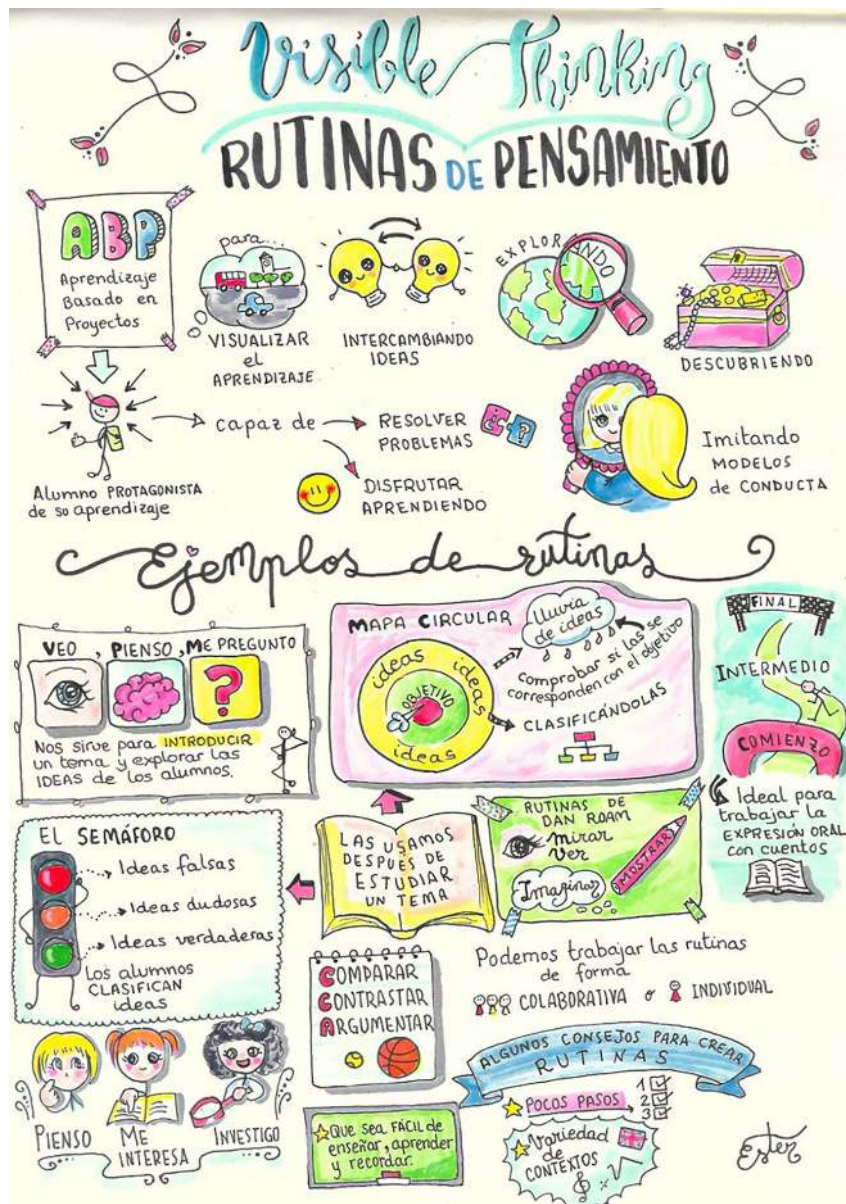 Visible Thinking
RUTINAS DE PENSAMIENTO
ABP
Aprendizaje
Basado en
Proyectos
para...
VISUALIZAR
el
APRENDIZAJE
INTERCAMBIANDO
IDEAS
EXPLORANDO
DESCUBRIENDO
Alumno PROTAGONISTA
de su aprendizaje
capaz de
RESOLVER
PROBLEMAS
DISFRUTAR
APRENDIENDO
Imitando
MODELOS
de CONDUCTA
Ejemplos de rutinas
VEO, PIENSO, ME PREGUNTO
?
Nos sirve para INTRODUCIR
un tema y explorar las
IDEAS de los alumnos.
MAPA CIRCULAR
ideas ideas
OBJETIVO
ideas
lluvia
de ideas
comprobar si las se
corresponden con el objetivo
CLASIFICÁNDOLAS
FINAL
INTERMEDIO
COMIENZO
Ideal para
trabajar la
EXPRESIÓN ORAL
con cuentos
EL SEMÁFORO
Ideas falsas
Ideas dudosas
Ideas verdaderas
Los alumnos
CLASIFICAN
ideas
LAS USAMOS
DESPUÉS DE
ESTUDIAR
UN TEMA
RUTINAS DE
DAN ROAM
mirar
ver
Imaginar
MOSTRAR
COMPARAR
CONTRASTAR
ARGUMENTAR
Podemos trabajar las rutinas
de forma
COLABORATIVA o INDIVIDUAL
PIENSO
ME
INTERESA
INVESTIGO
ALGUNOS CONSEJOS PARA CREAR
RUTINAS
POCOS PASOS
1
2
3
Que sea FÁCIL de
enseñar, aprender
y recordar.
Variedad
de
CONTEXTOS
Ester